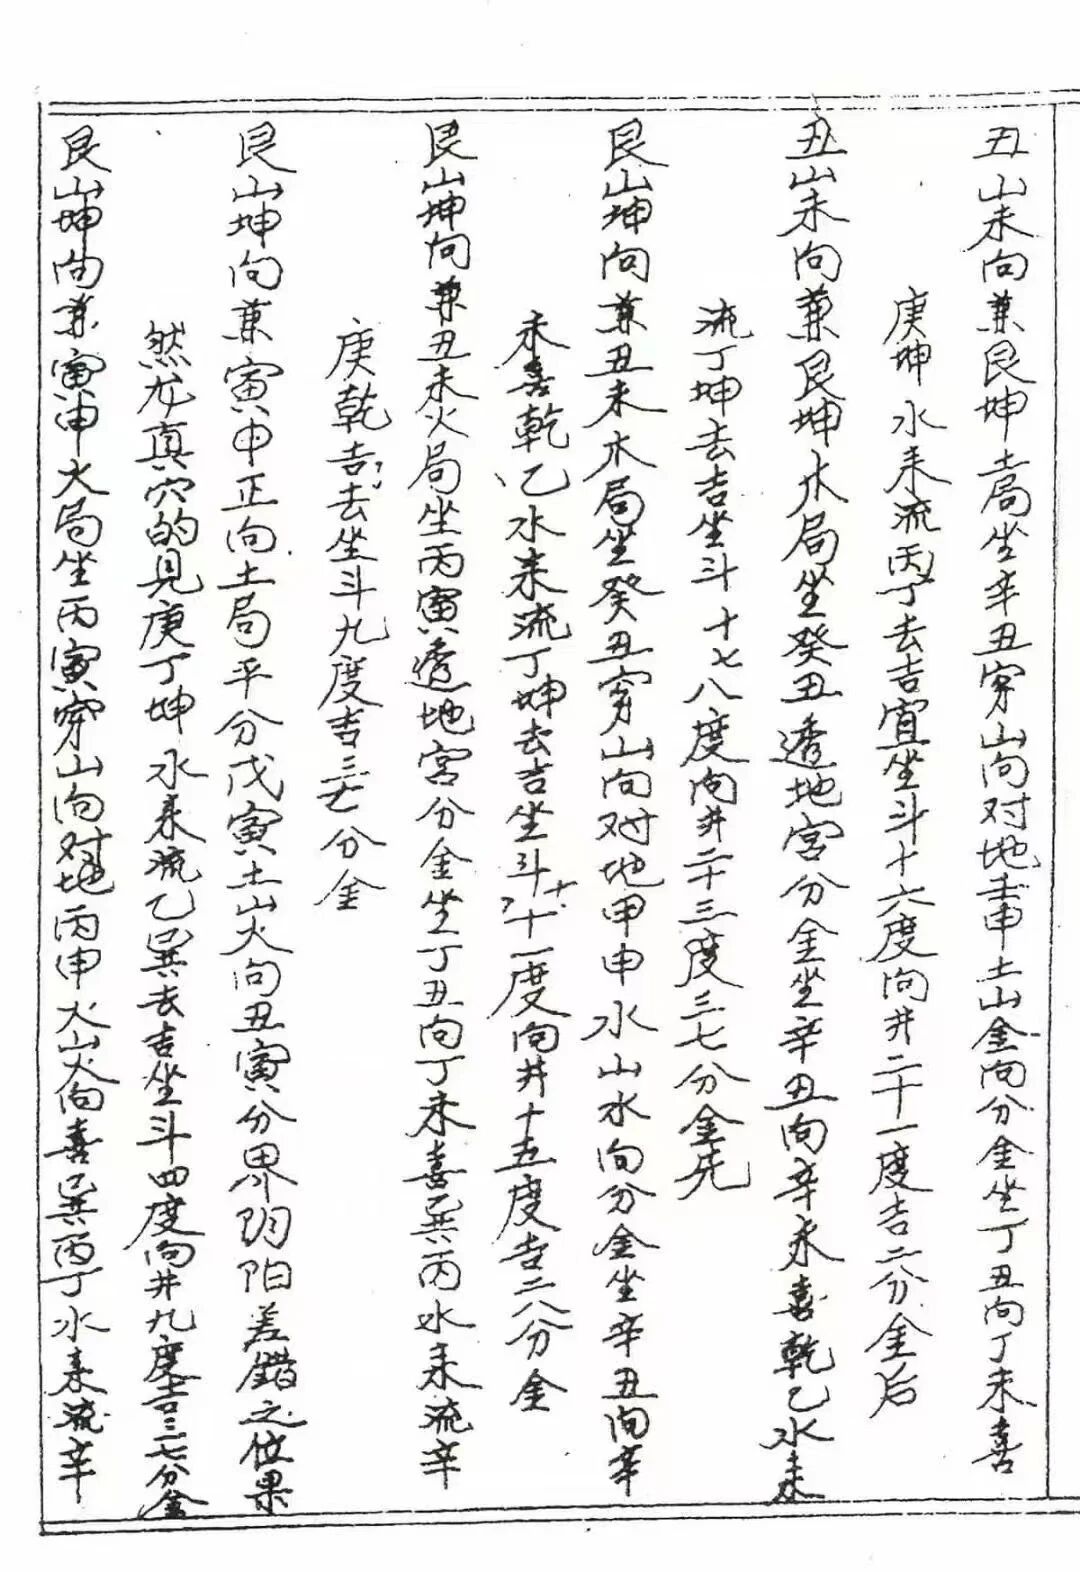 丑山未向兼艮坤土局坐辛丑穿山向对地壬申土山金向分金坐丁丑向丁未喜
庚坤水来流丙丁去吉宜坐斗十六度向井二十一度吉二分金后
丑山未向兼艮坤水局坐癸丑透地宫分金坐辛丑向辛未喜乾乙水来
流丁坤去吉坐斗十七八度向井二十三度三七分金先
艮山坤向兼丑未木局坐癸丑穿山向对地甲申水山水向分金坐辛丑向辛
未喜乾乙水来流丁坤去吉坐斗十一度向井十五度吉二八分金
艮山坤向兼丑未火局坐丙寅透地宫分金坐丁丑向丁未喜巽丙水来流辛
庚乾吉去坐斗九度吉三七分金
艮山坤向兼寅申正向土局平分戊寅土山火向丑寅分界阴阳差错之位果
然龙真穴的见庚丁坤水来流乙巽去吉坐斗四度向井九度吉三七分金
艮山坤向兼寅申火局坐丙寅穿山向对地丙申火山火向喜巽丙丁水来流辛